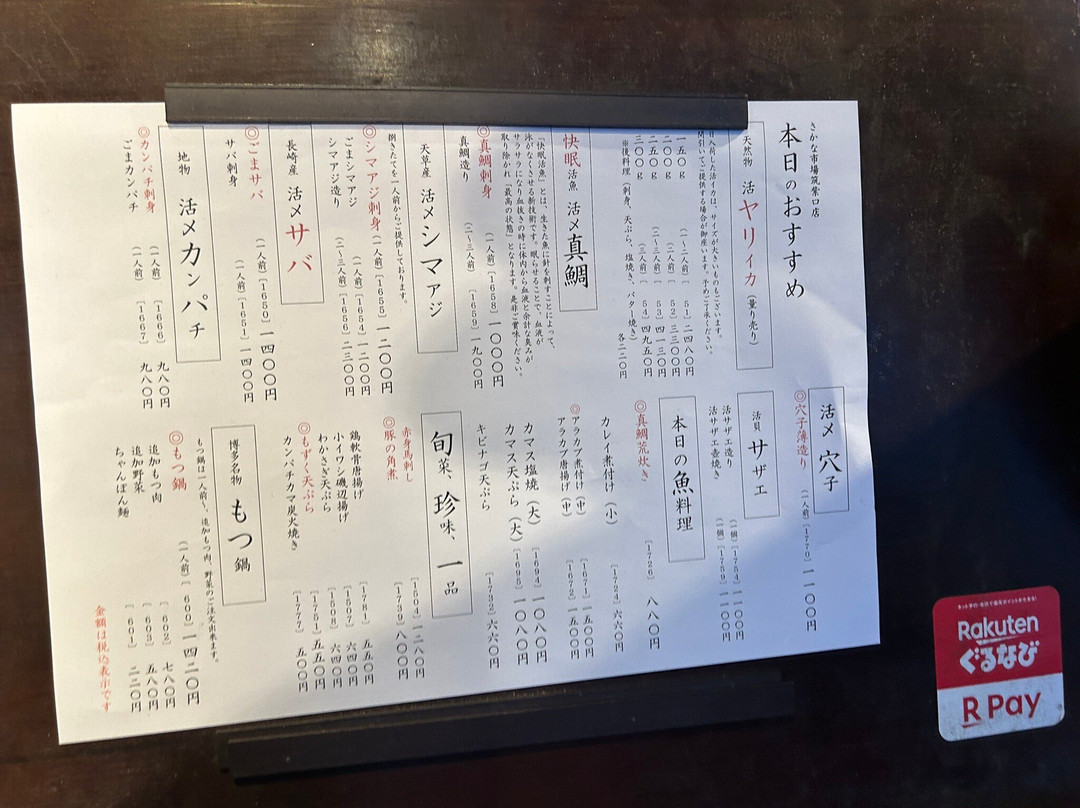 さかな市場筑紫口店
本日のおすすめ
天然物 活ヤリイカ(量り売り)
入荷した活イカは、サイズが大きいものもございます。
間引いてご提供する場合が御座います。予めご了承ください。
一五〇g (一〜二人前) [51] 二四八〇円
二〇〇g (二人前) [52] 三三〇〇円
二五〇g (二〜三人前) [53] 四一三〇円
三〇〇g (三人前) [54] 四九五〇円
※後料理(刺身、天ぷら、塩焼き、バター焼き) 各二二〇円
快眠活魚 活〆真鯛
「快眠活魚」とは、生きた魚に針を刺すことによって、
泳がなくさせる新技術です。眠らせることで、血液が
サラサラになり血抜きの時に体内から血液と余計な臭みが
取り除かれ「最高の状態」となります。是非ご賞味ください。
◎真鯛刺身 (一人前) [1658] 一〇〇〇円
真鯛造り (二〜三人前) [1659] 一九〇〇円
天草産 活〆シマアジ
捌きたてを一人前からご提供しております。
◎シマアジ刺身 (一人前) [1655] 一二〇〇円
ごまシマアジ (一人前) [1654] 一二〇〇円
シマアジ造り (二〜三人前) [1656] 二三〇〇円
長崎産 活〆サバ
◎ごまサバ (一人前) [1650] 一四〇〇円
サバ刺身 (一人前) [1651] 一四〇〇円
地物 活〆カンパチ
◎カンパチ刺身 (一人前) [1666] 九八〇円
ごまカンパチ (一人前) [1667] 九八〇円
活〆穴子
◎穴子薄造り (一人前) [1770] 一一〇〇円
活貝 サザエ
活サザエ造り (一個) [1754] 一一〇〇円
活サザエ壺焼き (一個) [1759] 一一〇〇円
本日の魚料理
◎真鯛荒炊き [1726] 八八〇円
カレイ煮付け(小) [1724] 六六〇円
◎アラカブ煮付け(中) [1671] 一五〇〇円
アラカブ唐揚げ(中) [1672] 一五〇〇円
カマス塩焼(大) [1694] 一〇八〇円
カマス天ぷら(大) [1695] 一〇八〇円
キビナゴ天ぷら [1732] 六六〇円
旬菜、珍味、一品
赤身馬刺し [1504] 一二八〇円
◎豚の角煮 [1739] 八〇〇円
鶏軟骨唐揚げ [1781] 五五〇円
小イワシ磯辺揚げ [1507] 六四〇円
わかさぎ天ぷら [1508] 六四〇円
◎もずく天ぷら [1751] 五五〇円
カンパチカマ炭火焼き [1777] 五五〇円
博多名物 もつ鍋
もつ鍋は一人前〜、追加もつ肉、野菜のご注文出来ます。
◎もつ鍋 (一人前) [600] 一四二〇円
追加もつ肉 [602] 七八〇円
追加野菜 [603] 五八〇円
ちゃんぽん麺 [601] 二二〇円
金額は税込表示です
Rakuten
ぐるなび
R Pay